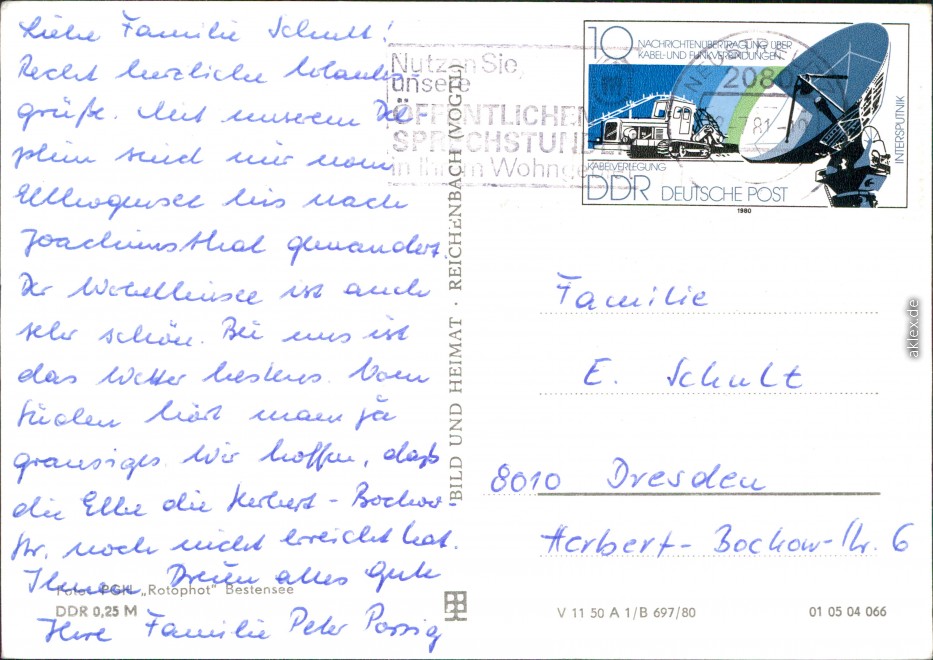 Liebe Familie Schult!
Recht herzliche Urlaubs-
grüße. Mit unserem
sind wir vom
bis nach
Joachimsthal gewandert.
Der Werbellinsee ist auch
sehr schön. Bei uns ist
das Wetter bestens. Vom
Süden hört man ja
grausiges. Wir hoffen, daß
die Elbe die Herbert-Bochow-
Str. noch nicht erreicht hat.
Ihnen Dreien alles Gute
Ihre Familie Peter
Foto: PGH „Rotophot" Bestensee
DDR 0,25 M
BILD UND HEIMAT · REICHENBACH (VOGTL)
Nutzen Sie
unsere
ÖFFENTLICHEN
SPRECHSTUNDEN
in Ihrem
2080
81
10
NACHRICHTENÜBERTRAGUNG ÜBER
KABEL- UND FUNKVERBINDUNGEN
INTERSPUTNIK
KABELVERLEGUNG
DDR DEUTSCHE POST
1980
Familie
E. Schult
8010 Dresden
Herbert-Bochow-Str. 6
V 11 50 A 1/B 697/80
01 05 04 066
aklex.de